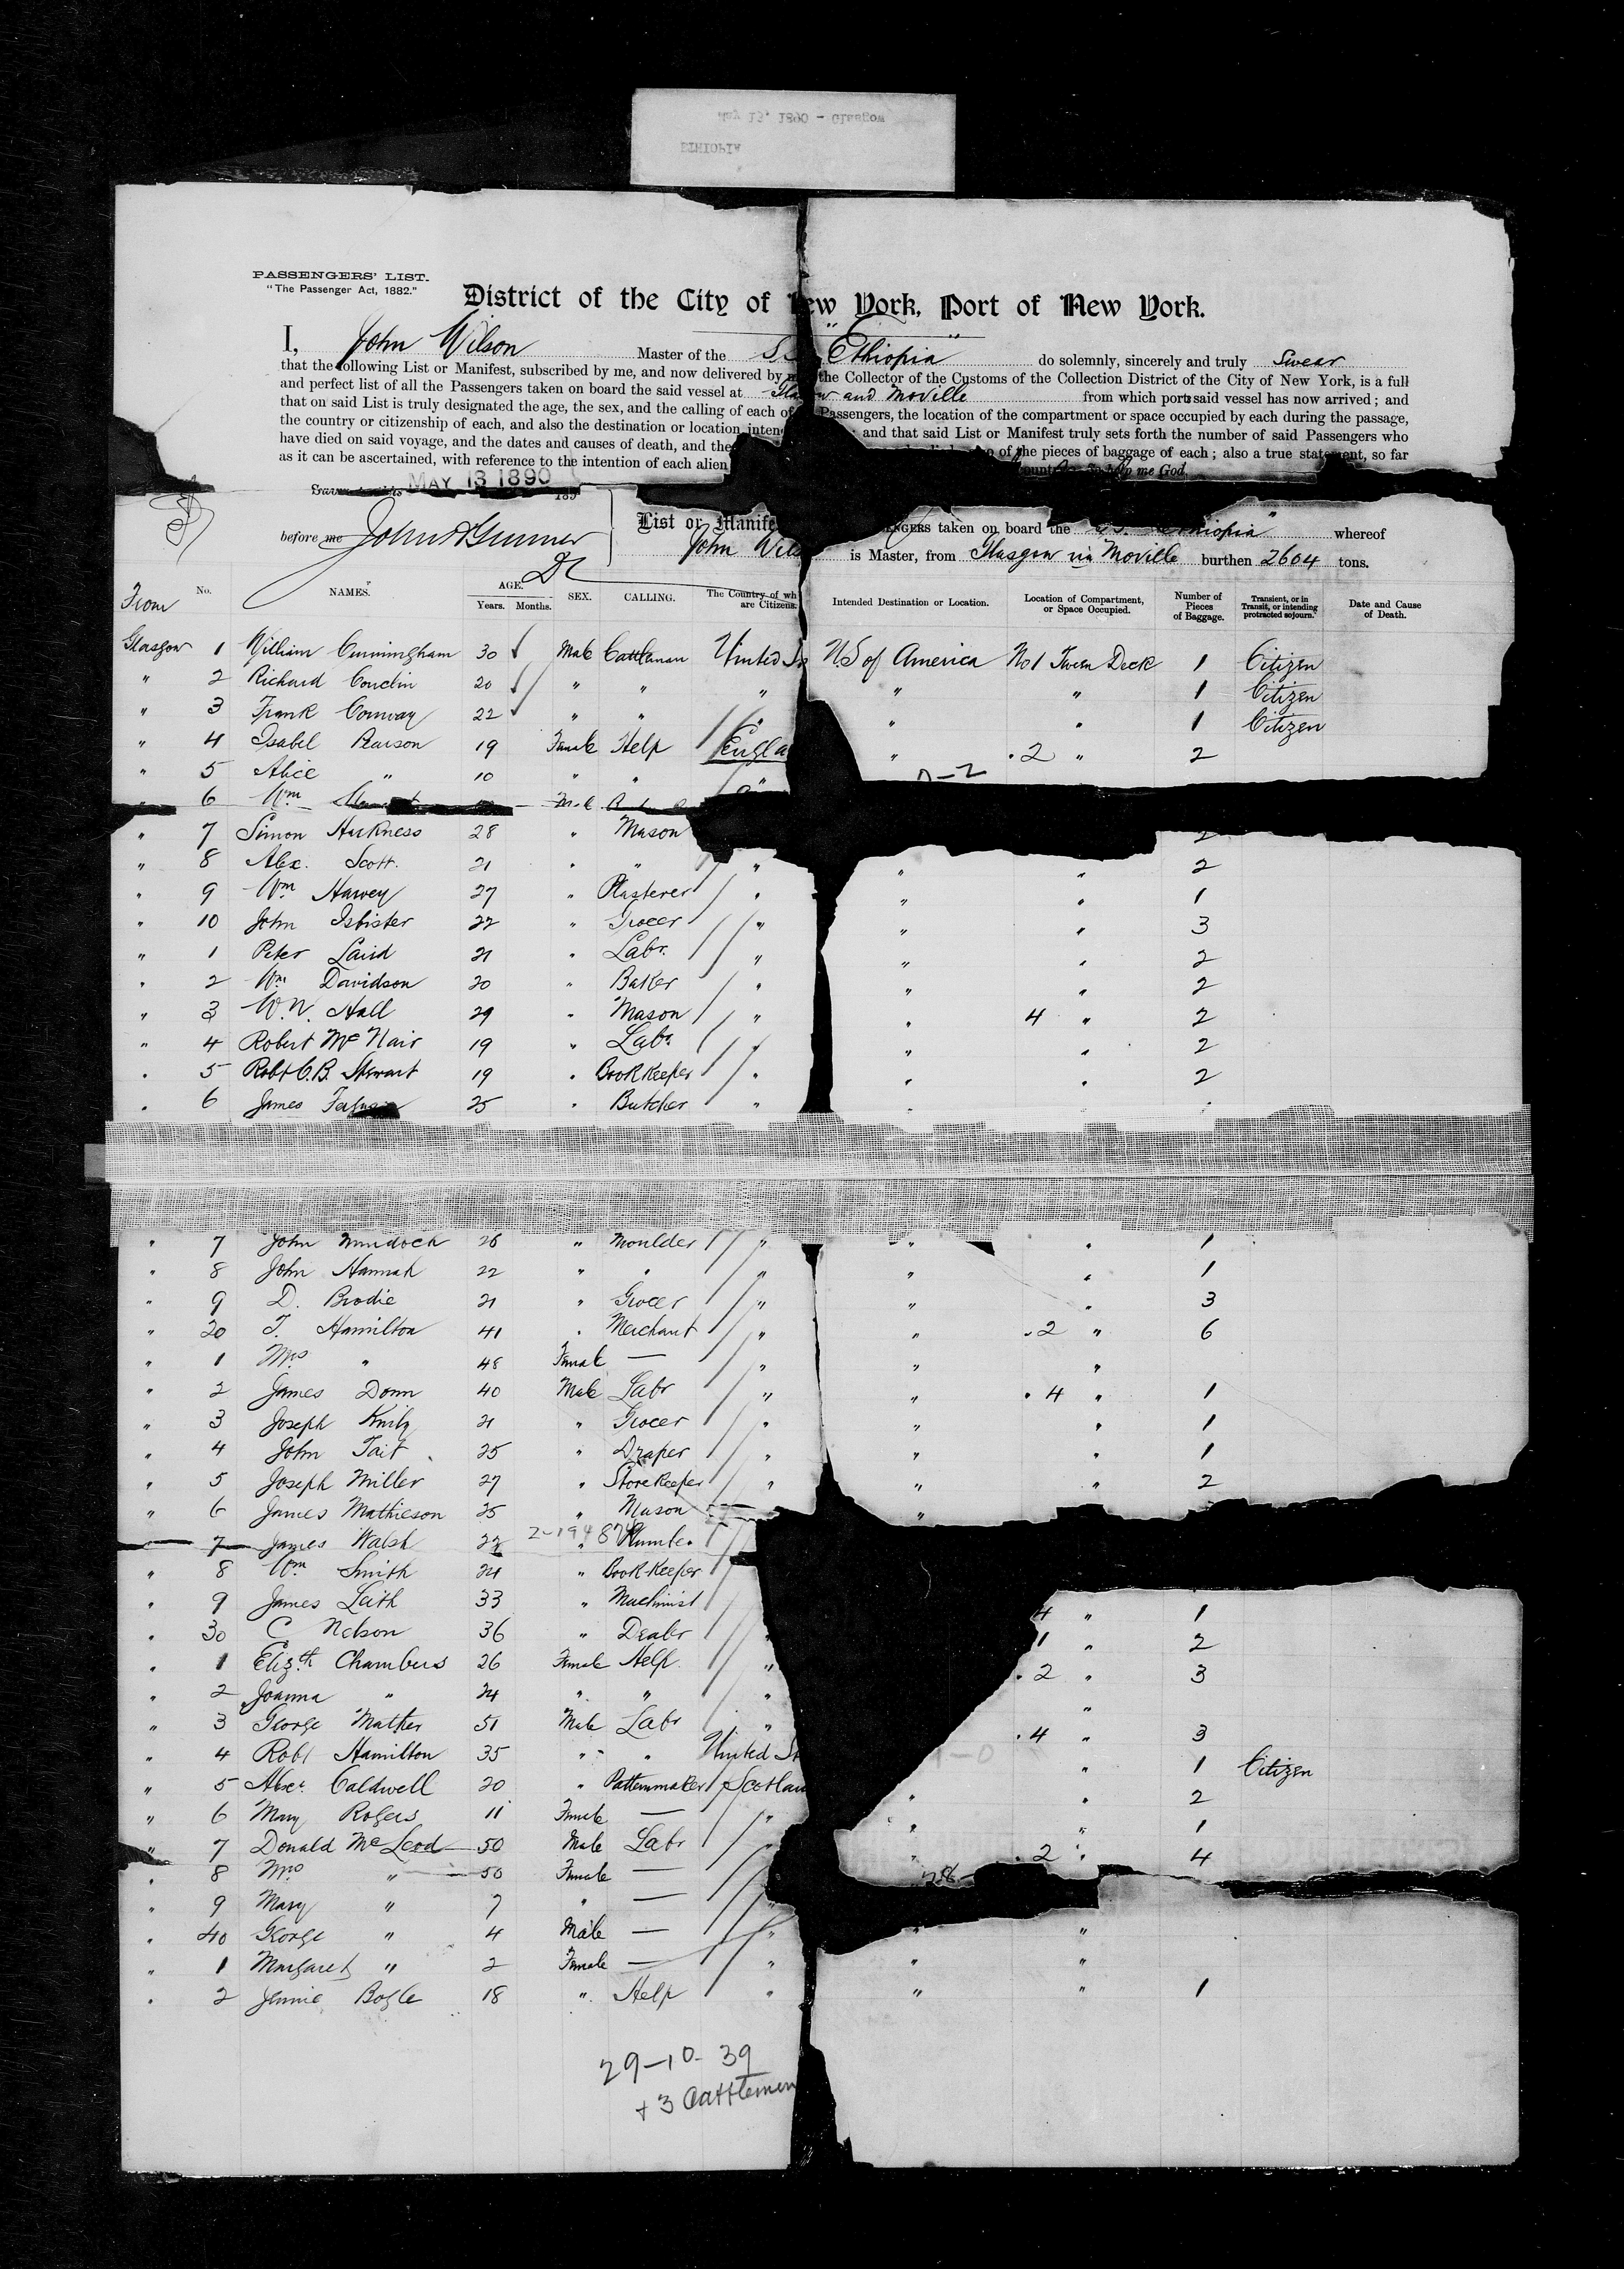 May 13, 1890 - Glasgow
ETHIOPIA
PASSENGERS' LIST.
"The Passenger Act, 1882."
District of the City of New York, Port of New York.
I, John Wilson Master of the "Ethiopia" do solemnly, sincerely and truly Swear
that the following List or Manifest, subscribed by me, and now delivered by the Collector of the Customs of the Collection District of the City of New York, is a full
and perfect list of all the Passengers taken on board the said vessel at Glasgow and Moville from which ports said vessel has now arrived; and
that on said List is truly designated the age, the sex, and the calling of each of Passengers, the location of the compartment or space occupied by each during the passage,
the country or citizenship of each, and also the destination or location and that said List or Manifest truly sets forth the number of said Passengers who
have died on said voyage, and the dates and causes of death, and the of the pieces of baggage of each; also a true statement, so far
as it can be ascertained, with reference to the intention of each alien help me God
MAY 13 1890 189
List or Manifest taken on board the Ethiopia whereof
before me
John Wilson is Master, from Glasgow via Moville burthen 2604 tons.
From No. NAMES. AGE. Years. Months. SEX. CALLING. The Country of wh are Citizens. Intended Destination or Location. Location of Compartment, or Space Occupied. Number of Pieces of Baggage. Transient, or in Transit, or intending protracted sojourn. Date and Cause of Death.
Glasgow 1 William Cunningham 30 Male Cattleman United US of America No 1 Tween Deck 1 Citizen
" 2 Richard 20 " " " " " 1 Citizen
" 3 Frank Conway 22 " " " " " 1 Citizen
" 4 Isabel Pearson 19 Female Help Engla " . 2 " 2
" 5 Alice " 10 " "
" 6 Wm
" 7 Simon Harkness 28 " Mason 2
" 8 Alex. Scott. 21 " " " " " 2
" 9 Wm Harvey 27 " Plasterer " " " 1
" 10 John Isbister 22 " Grocer " " " 3
" 1 Peter Laird 21 " Labr. " " " 2
" 2 Wm Davidson 20 " Baker " " " 2
" 3 W.N. Hall 29 " Mason " " 4 " 2
" 4 Robert McNair 19 " Labr " " " 2
" 5 Robt C.B. Stewart 19 " Bookkeeper " " " 2
" 6 James 25 " Butcher "
" 7 John Murdoch 26 " Moulder " " " 1
" 8 John Hannah 22 " " " " " 1
" 9 D. Brodie 21 " Grocer " " " 3
" 20 T. Hamilton 41 " Merchant " " . 2 " 6
" 1 Mrs " 48 Female — " " "
" 2 James Donn 40 Male Labr " " . 4 " 1
" 3 Joseph 21 " Grocer " " " 1
" 4 John Tait 25 " Draper " " " 1
" 5 Joseph Miller 27 " Storekeeper " " " 2
" 6 James Mathieson 25 " Mason "
7 James Walsh 22 "
" 8 Wm Smith 24 " Book-keeper
" 9 James Leith 33 " Machinist 4 " 1
" 30 C Nelson 36 " Dealer 1 " 2
" 1 Elizth Chambers 26 Female Help " . 2 " 3
" 2 Joanna " 24 " " " "
" 3 George Mather 51 Male Labr " . 4 " 3
" 4 Robt Hamilton 35 " " United " 1 Citizen
" 5 Alexr Caldwell 20 " Patternmaker Scotlan " " 2
" 6 Mary Rogers 11 Female — " " " 1
" 7 Donald McLeod 50 Male Labr " . 2 " 4
" 8 Mrs " 50 Female —
" 9 Mary " 7 " —
" 40 George " 4 Male — " " "
" 1 Margaret " 2 Female — " " "
" 2 Jennie Bogle 18 " Help " " " 1
29-10-39
+ 3 Cattlemen